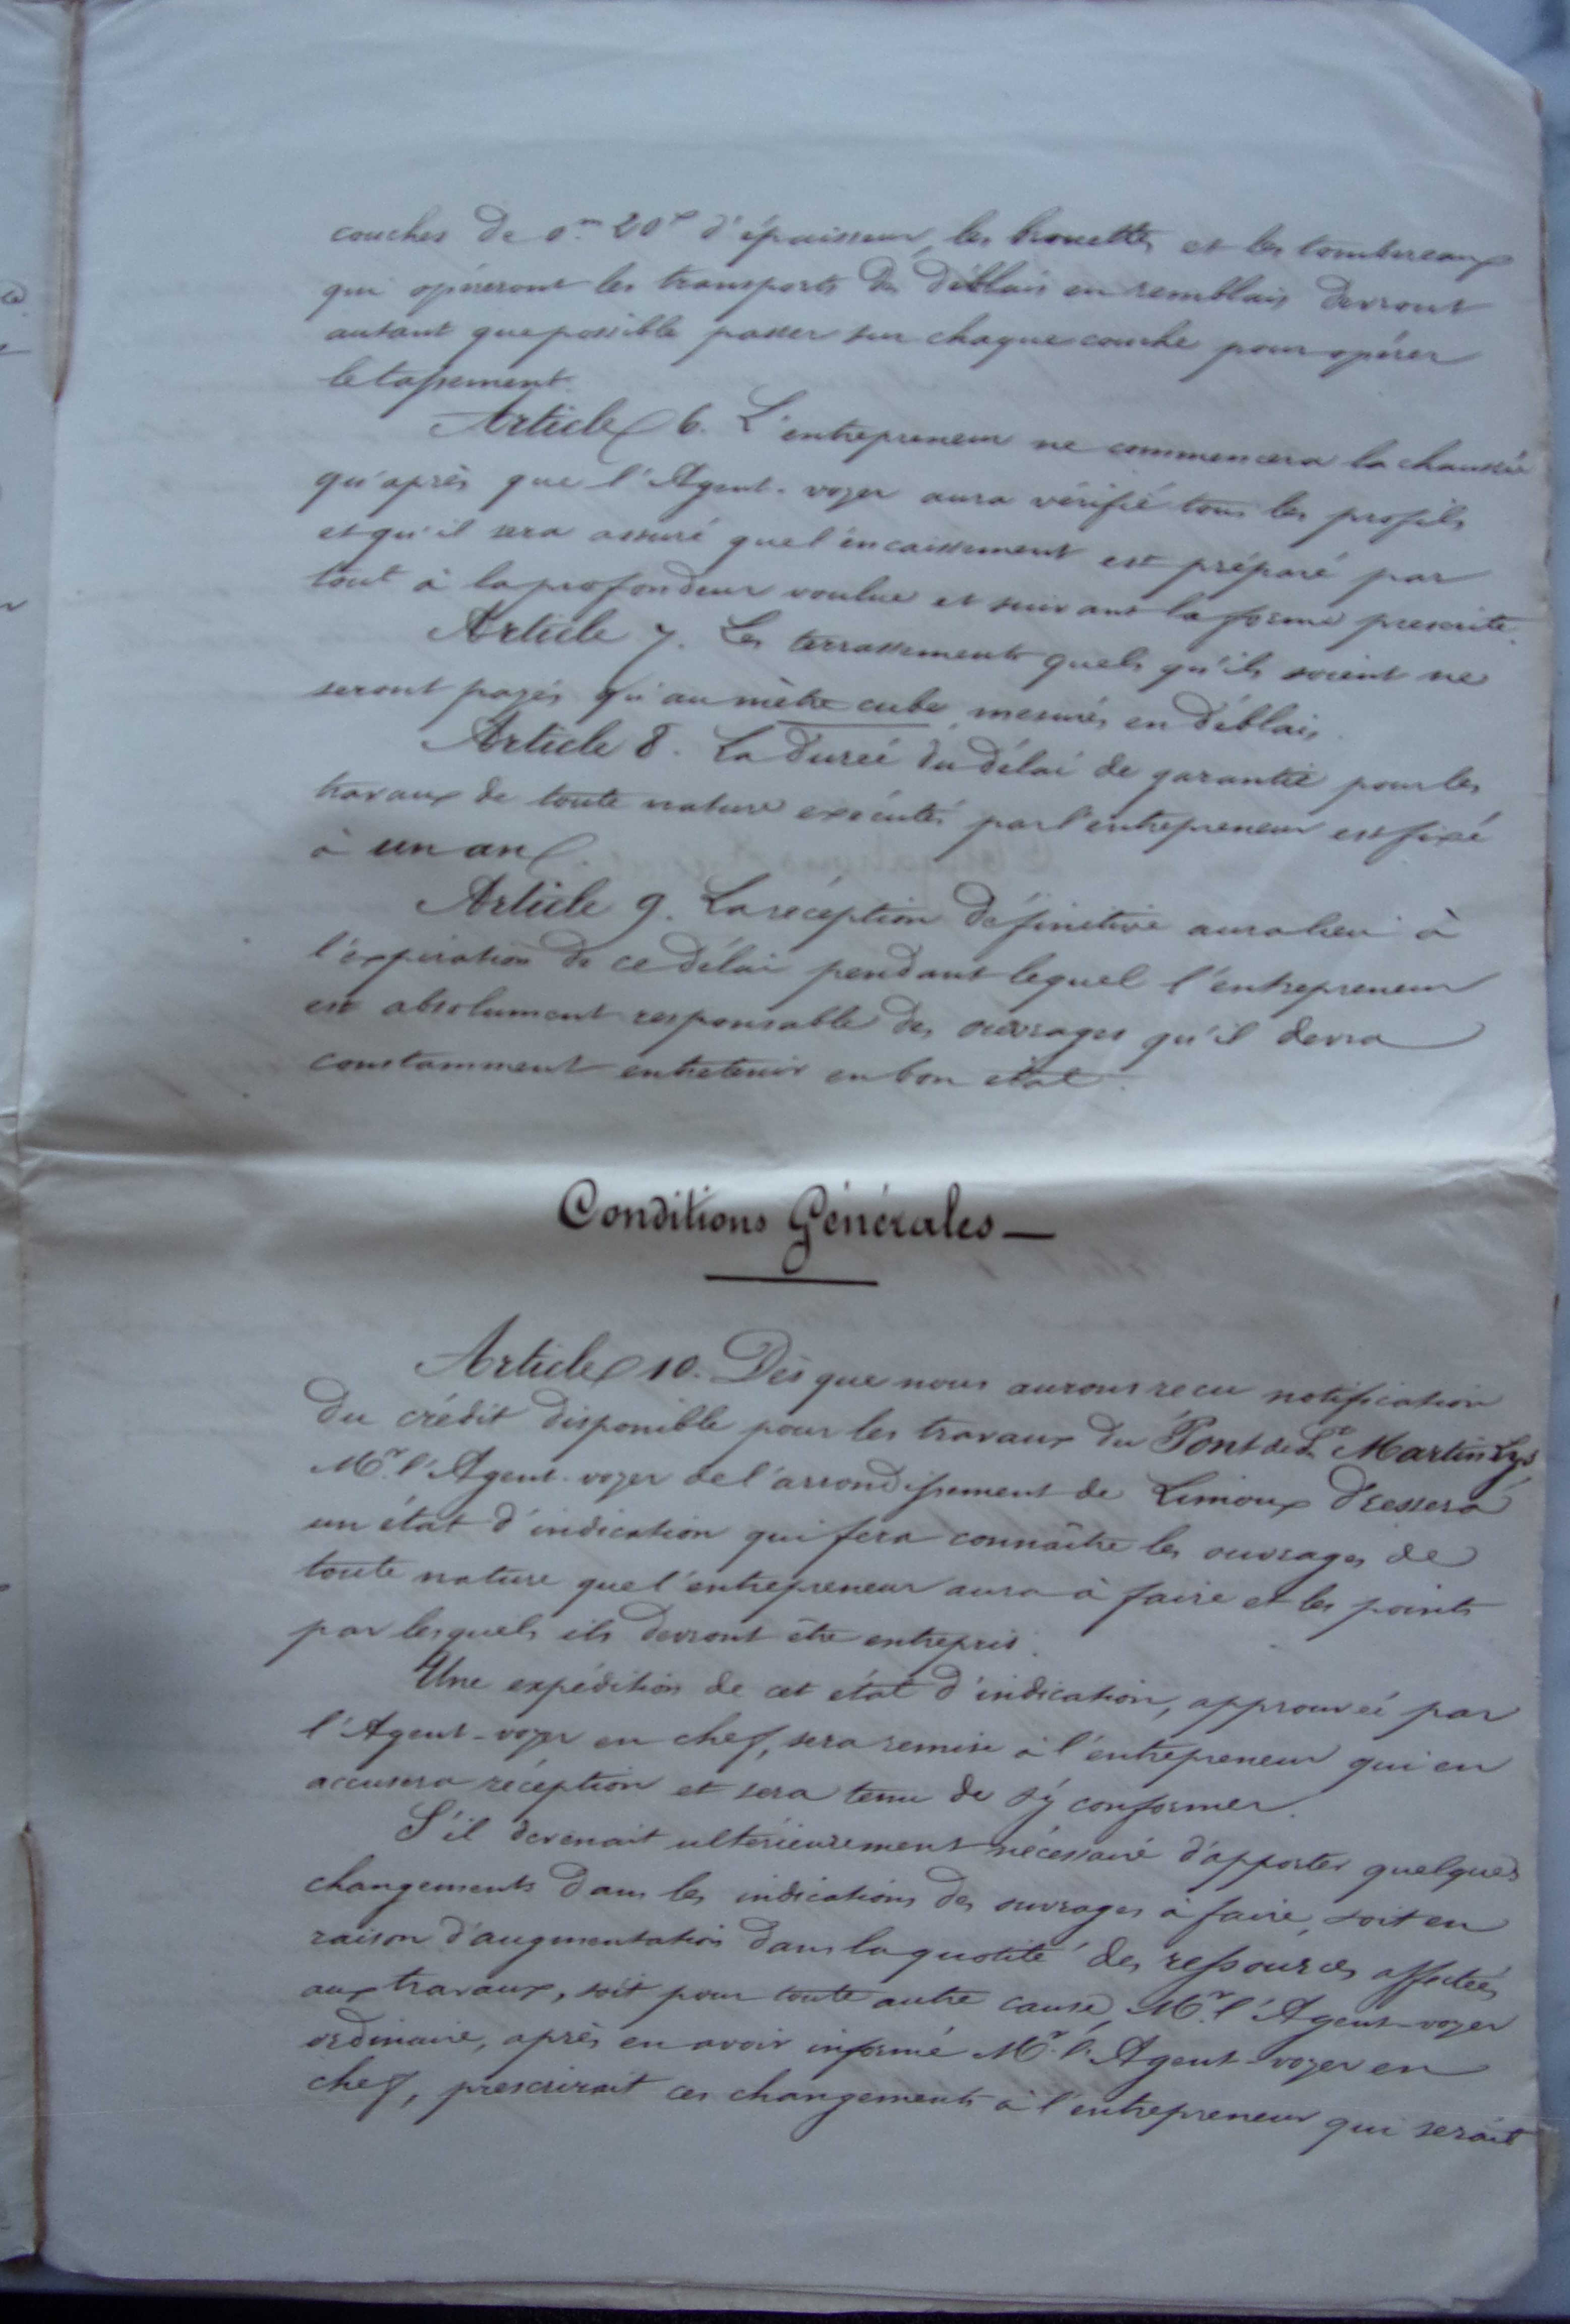 couches de 0.m 20c d'épaisseur, les brouettes et les tombereaux
qui opéreront les transports des déblais en remblais devront
autant que possible passer sur chaque couche pour opérer
le tassement.
Article 6. L'entrepreneur ne commencera la chaussée
qu'après que l'Agent-voyer aura vérifié tous les profils
et qu'il sera assuré que l'encaissement est préparé par
tout à la profondeur voulue et suivant la forme prescrite.
Article 7. Les terrassements quels qu'ils soient ne
seront payés qu'au mètre cube, mesurés en déblais.
Article 8. La durée du délai de garantie pour les
travaux de toute nature exécutés par l'entrepreneur est fixé
à un an.
Article 9. La réception définitive aura lieu à
l'expiration de ce délai pendant lequel l'entrepreneur
est absolument responsable des ouvrages qu'il devra
constamment entretenir en bon état.
Conditions Générales —
Article 10. Dès que nous aurons recu notification
du crédit disponible pour les travaux du Pont de St Martin Lys
Mr. l'Agent-voyer de l'arrondissement de Limoux dressera
un état d'indication qui fera connaître les ouvrages de
toute nature que l'entrepreneur aura à faire et les points
par lesquels ils devront être entrepris.
Une expédition de cet état d'indication, approuvée par
l'Agent-voyer en chef, sera remise à l'entrepreneur qui en
accusera réception et sera tenu de s'y conformer.
S'il devenait ultérieurement nécessaire d'apporter quelques
changements dans les indications des ouvrages à faire, soit en
raison d'augmentation dans la quotité des ressources affectées
aux travaux, soit pour toute autre cause, Mr. l'Agent-voyer
ordinaire, après en avoir informé Mr. l'Agent-voyer en
chef, prescrirait ces changements à l'entrepreneur qui serait